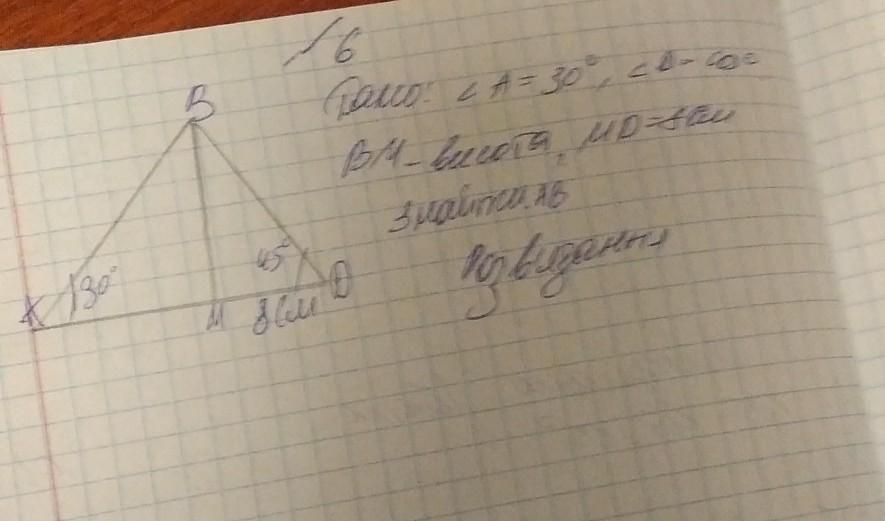 № 6
Дано: ∠A = 30°, ∠D
BM - висота, MD = 8 см
Знайти: AB
Розв'язання
B
45°
30°
A
M
8 см
D